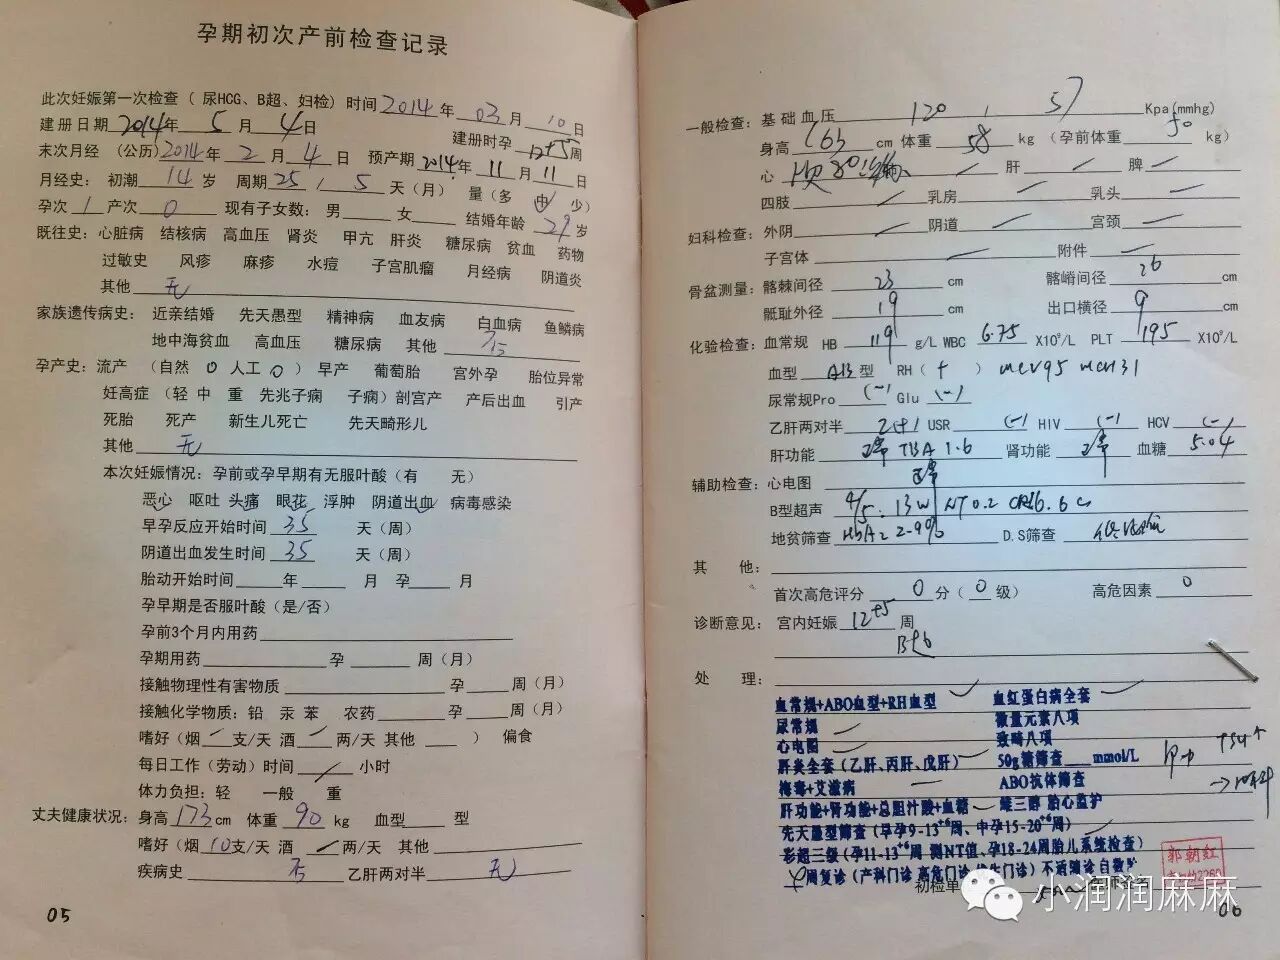 孕期初次产前检查记录
此次妊娠第一次检查（尿HCG、B超、妇检）时间 2014 年 03 月 10 日
建册日期 2014年 5 月 4 日 建册时孕 12+5 周
末次月经 （公历）2014 年 2 月 4 日 预产期 2014 年 11 月 11 日
月经史： 初潮 14 岁 周期 25 / 5 天（月） 量（多 中 少）
孕次 1 产次 0 现有子女数： 男 女 结婚年龄 29 岁
既往史：心脏病 结核病 高血压 肾炎 甲亢 肝炎 糖尿病 贫血 药物
过敏史 风疹 麻疹 水痘 子宫肌瘤 月经病 阴道炎
其他 无
家族遗传病史： 近亲结婚 先天愚型 精神病 血友病 白血病 鱼鳞病
地中海贫血 高血压 糖尿病 其他
孕产史：流产 （自然 0 人工 0 ） 早产 葡萄胎 宫外孕 胎位异常
妊高症 （轻 中 重 先兆子痫 子痫）剖宫产 产后出血 引产
死胎 死产 新生儿死亡 先天畸形儿
其他 无
本次妊娠情况：孕前或孕早期有无服叶酸（有 无）
恶心 呕吐 头痛 眼花 浮肿 阴道出血 病毒感染
早孕反应开始时间 35 天（周）
阴道出血发生时间 35 天（周）
胎动开始时间 年 月 孕 月
孕早期是否服叶酸（是/否）
孕前3个月内用药
孕期用药 孕 周（月）
接触物理性有害物质 孕 周（月）
接触化学物质：铅 汞 苯 农药 孕 周（月）
嗜好（烟 支/天 酒 两/天 其他 ） 偏食
每日工作（劳动）时间 小时
体力负担：轻 一般 重
丈夫健康状况：身高 173 cm 体重 90 kg 血型 型
嗜好（烟 10 支/天 酒 两/天 其他
疾病史 否 乙肝两对半 无
05
一般检查：基础血压 120 / 57 Kpa(mmhg)
身高 163 cm 体重 58 kg （孕前体重 50 kg）
心 HR 80 肝 脾
四肢 乳房 乳头
妇科检查：外阴 阴道 宫颈
子宫体 附件
骨盆测量：髂棘间径 23 cm 髂嵴间径 26 cm
骶耻外径 19 cm 出口横径 9 cm
化验检查：血常规 HB 119 g/L WBC 6.75 X10⁹/L PLT 195 X10⁹/L
血型 AB 型 RH（ + ） MCV95 MCH31
尿常规Pro (-) Glu (-)
乙肝两对半 2(+) USR (-) HIV (-) HCV (-)
肝功能 正常 TBA 1.6 肾功能 正常 血糖 5.04
辅助检查：心电图 正常
B型超声 4/5: 13W NT 0.2 CRL6.6c
地贫筛查 HbA2 2.9% D.S筛查
其 他：
首次高危评分 0 分（ 0 级） 高危因素 0
诊断意见： 宫内妊娠 12+5 周
处 理：
血常规+ABO血型+RH血型 血红蛋白病全套
尿常规 微量元素八项
心电图 致畸八项
肝炎全套（乙肝、丙肝、戊肝） 50g糖筛查 mmol/L
梅毒+艾滋病 ABO抗体筛查
肝功能+肾功能+总胆汁酸+血糖 雌三醇 胎心监护
先天愚型筛查（早孕9-13⁺⁶周、中孕15-20⁺⁶周）
彩超三级（孕11-13⁺⁶周 测NT值、孕18-24周胎儿系统检查）
周复诊（产科门诊 高危门诊 门诊）不适随诊 自数
初检单
郭朝红
小润润麻麻
06